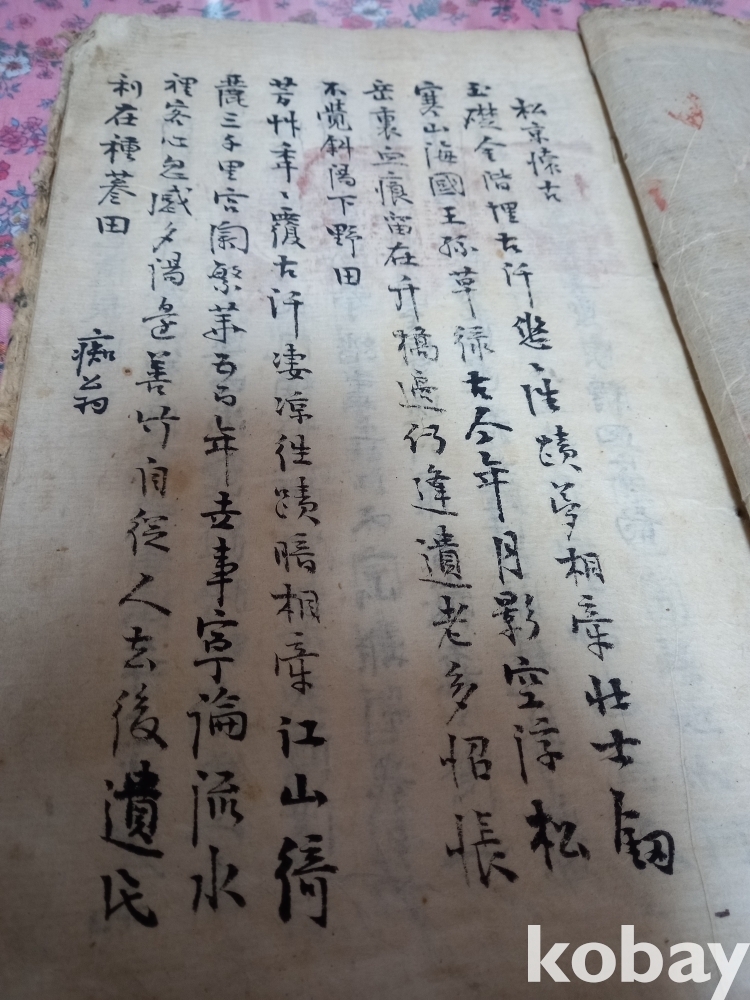 松京懷古
玉礎金階埋古阡悠〻往蹟夢相牽壯士劒
寒山海國王孫草綠古今年月影空浮松
岳裏血痕留在竹橋邊行逢遺老多怊悵
不覺斜陽下野田
芳艸年〻覆古阡凄凉往蹟暗相牽江山綺
麗三千里宮闕繁華五百年去事寧論流水
裡客心忽感夕陽邊善竹自從人去後遺民
利在種蔘田
痴翁
kobay